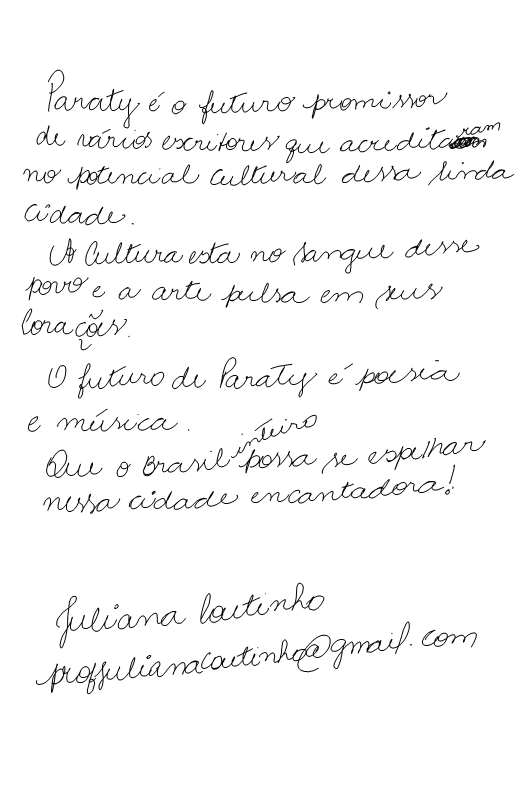 Paraty é o futuro promissor
de vários escritores que acreditaram
no potencial cultural dessa linda
cidade.
A Cultura esta no sangue desse
povo e a arte pulsa em seus
Corações.
O futuro de Paraty é poesia
e música.
Que o Brasil inteiro possa se espelhar
nessa cidade encantadora!
Juliana Coutinho
profjulianacoutinho@gmail.com